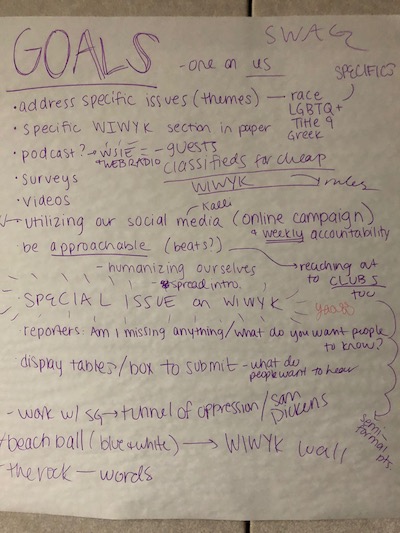 GOALS
SWAG
- one on us
SPECIFICS
• address specific issues (themes) — race
LGBTQ+
Title 9
Greek
• specific WIWYK section in paper
• podcast? → WSIE = - guests
+ WEB RADIO
classifieds for cheap
• surveys
WIWYK → rules
• videos
Kalli
- utilizing our social media (online campaign)
& weekly accountability
be approachable (beats?)
→ reaching out
to CLUBS
too
- humanizing ourselves
spread intro.
SPECIAL ISSUE on WIWYK
yesss
reporters: Am I missing anything/what do you want people
to know?
display tables/box to submit - what do
people want to hear
- work w/ SG → tunnel of oppression/Sam
Dickens
semi-
formal
pts.
- beach ball (blue & white) → WIWYK wall
- the rock — words